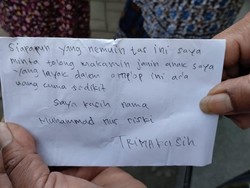 Siapapun yang nemuin tas ini saya
minta tolong makamin janin anak saya
yang layak dalem amplop ini ada
uang cuma sedikit
saya kasih nama
Muhammad nur rezki
TRIMAKASIH